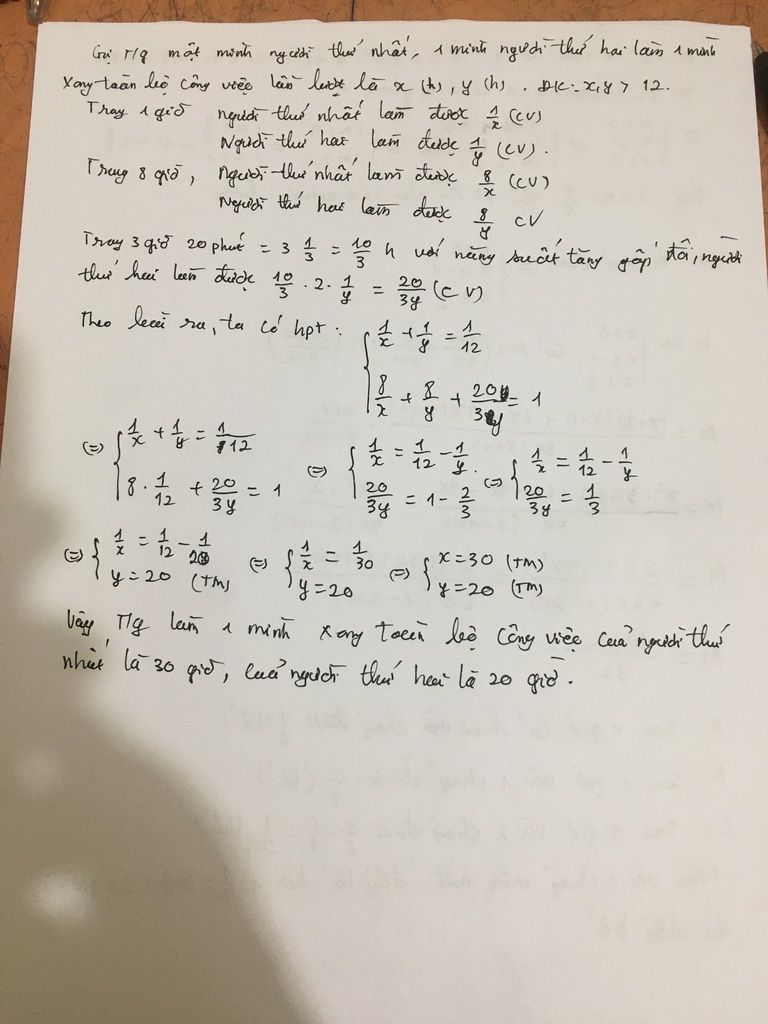 Gọi T/g một mình người thứ nhất, 1 mình người thứ hai làm 1 mình
xong toàn bộ công việc lần lượt là x (h), y (h). ĐK: x, y > 12.
Trong 1 giờ người thứ nhất làm được 1/x (CV)
Người thứ hai làm được 1/y (CV).
Trong 8 giờ, Người thứ nhất làm được 8/x (CV)
Người thứ hai làm được 8/y CV
Trong 3 giờ 20 phút = 3 1/3 = 10/3 h với năng suất tăng gấp đôi, người
thứ hai làm được 10/3 . 2 . 1/y = 20/3y (CV)
Theo bài ra, ta có hpt: { 1/x + 1/y = 1/12
8/x + 8/y + 20/3y = 1
(=) { 1/x + 1/y = 1/12 (=) { 1/x = 1/12 - 1/y (=) { 1/x = 1/12 - 1/y
8 . 1/12 + 20/3y = 1 20/3y = 1 - 2/3 20/3y = 1/3
(=) { 1/x = 1/12 - 1/20 (=) { 1/x = 1/30 (=) { x = 30 (TM)
y = 20 (TM) y = 20 y = 20 (TM)
Vậy T/g làm 1 mình xong toàn bộ công việc của người thứ
nhất là 30 giờ, của người thứ hai là 20 giờ.